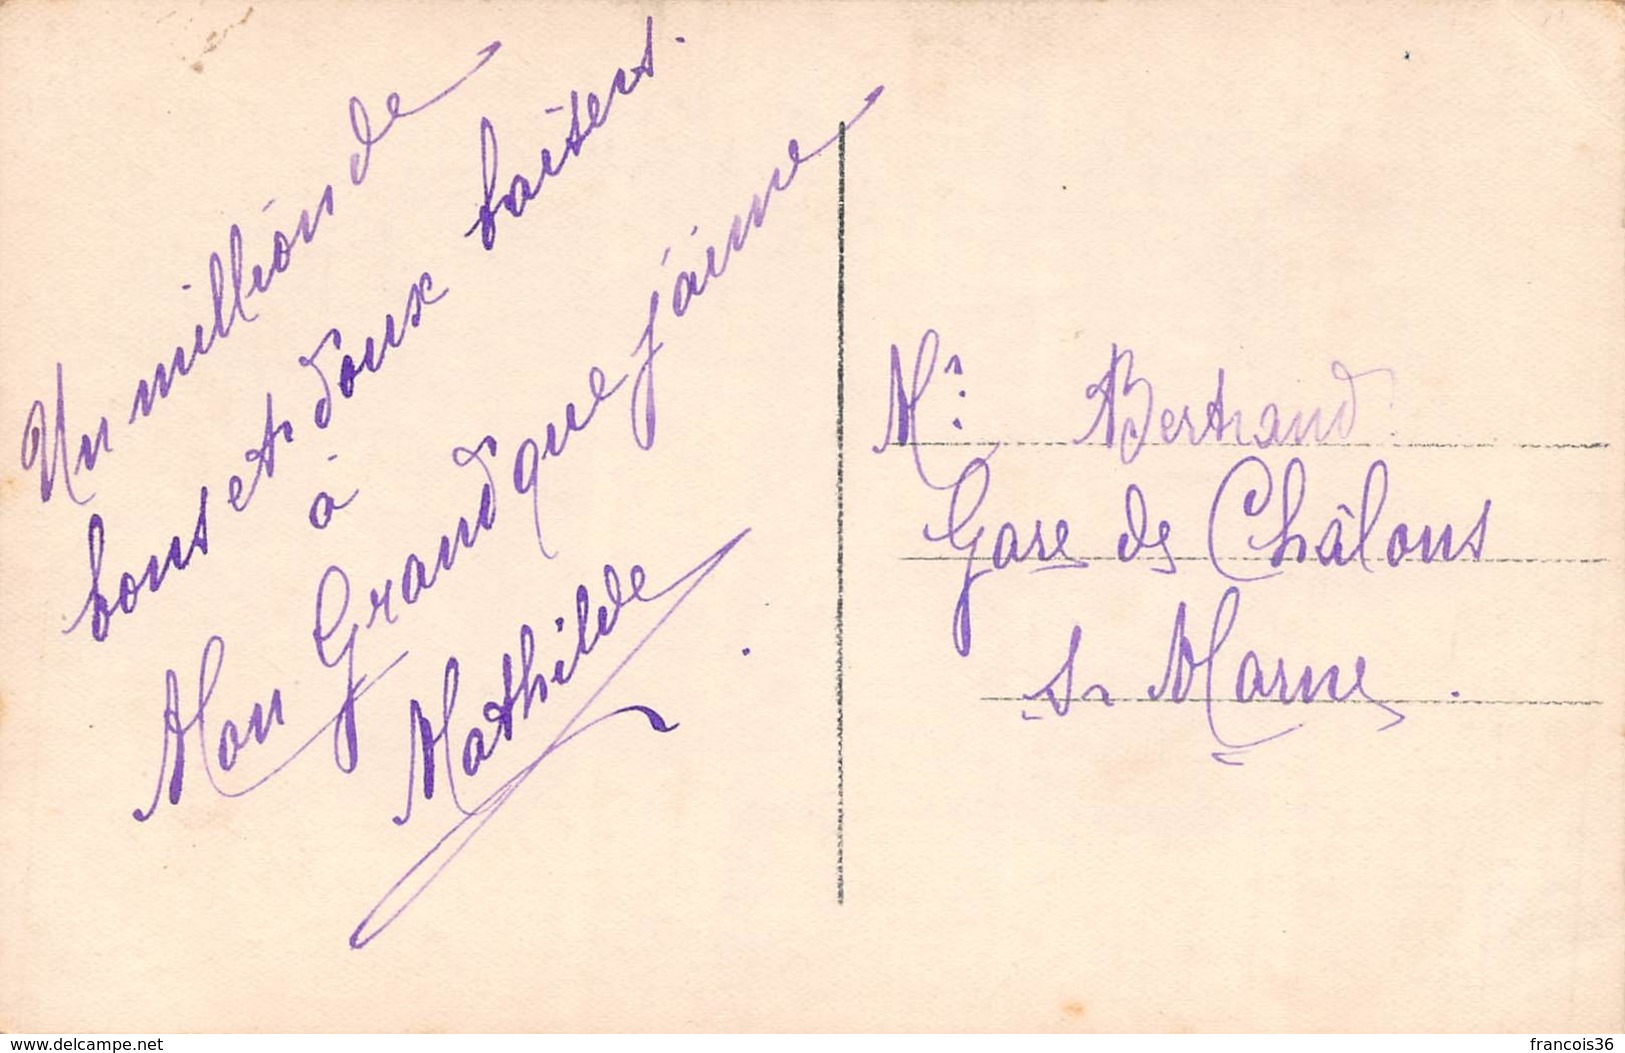 Un million de
bons et doux baisers.
à
Mon Grand que j'aime
Mathilde
Mr. Bertrand
Gare de Châlons
s. Marne.
www.delcampe.net
francois36